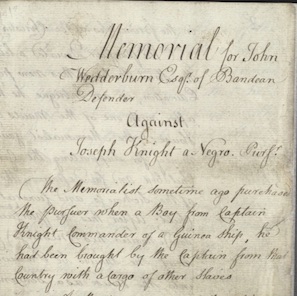 Memorial for John
Wedderburn Esqr. of Bandean
Defender
Against
Joseph Knight a Negro. Pursr.
The Memorialist sometime ago purchased
the pursuer when a Boy from Captain
Knight Commander of a Guinea Ship, he
had been bought by the Captain from that
Country with a Cargo of other Slaves